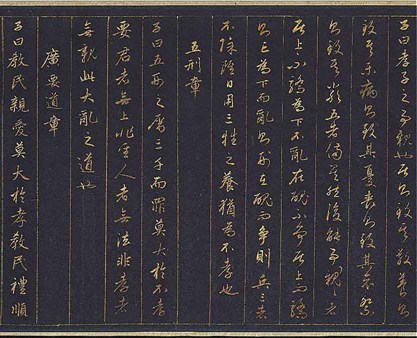 子曰孝子之事親也居則致其敬養則
致其樂病則致其憂喪則致其哀祭
則致其嚴五者備矣然後能事親者
居上不驕為下不亂在醜不爭居上而驕
則亡為下而亂則刑在醜而爭則兵三者
不除雖日用三牲之養猶為不孝也
五刑章
子曰五刑之屬三千而罪莫大於不孝
要君者無上非聖人者無法非孝者
無親此大亂之道也
廣要道章
子曰教民親愛莫大於孝教民禮順